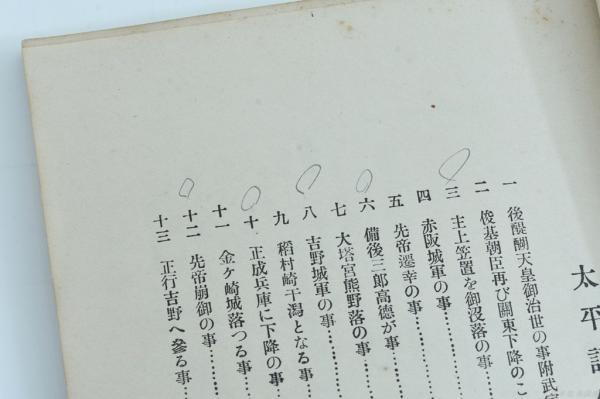 太平記
一 後醍醐天皇御治世の事附武家
二 俊基朝臣再び關東下降のこ
三 主上笠置を御沒落の事……
四 赤阪城軍の事………
五 先帝遷幸の事………
六 備後三郎高德が事………
七 大塔宮熊野落の事………
八 吉野城軍の事…………
九 稻村崎干潟となる事………
十 正成兵庫に下降の事………
十一 金ヶ崎城落つる事………
十二 先帝崩御の事………
十三 正行吉野へ參る事……